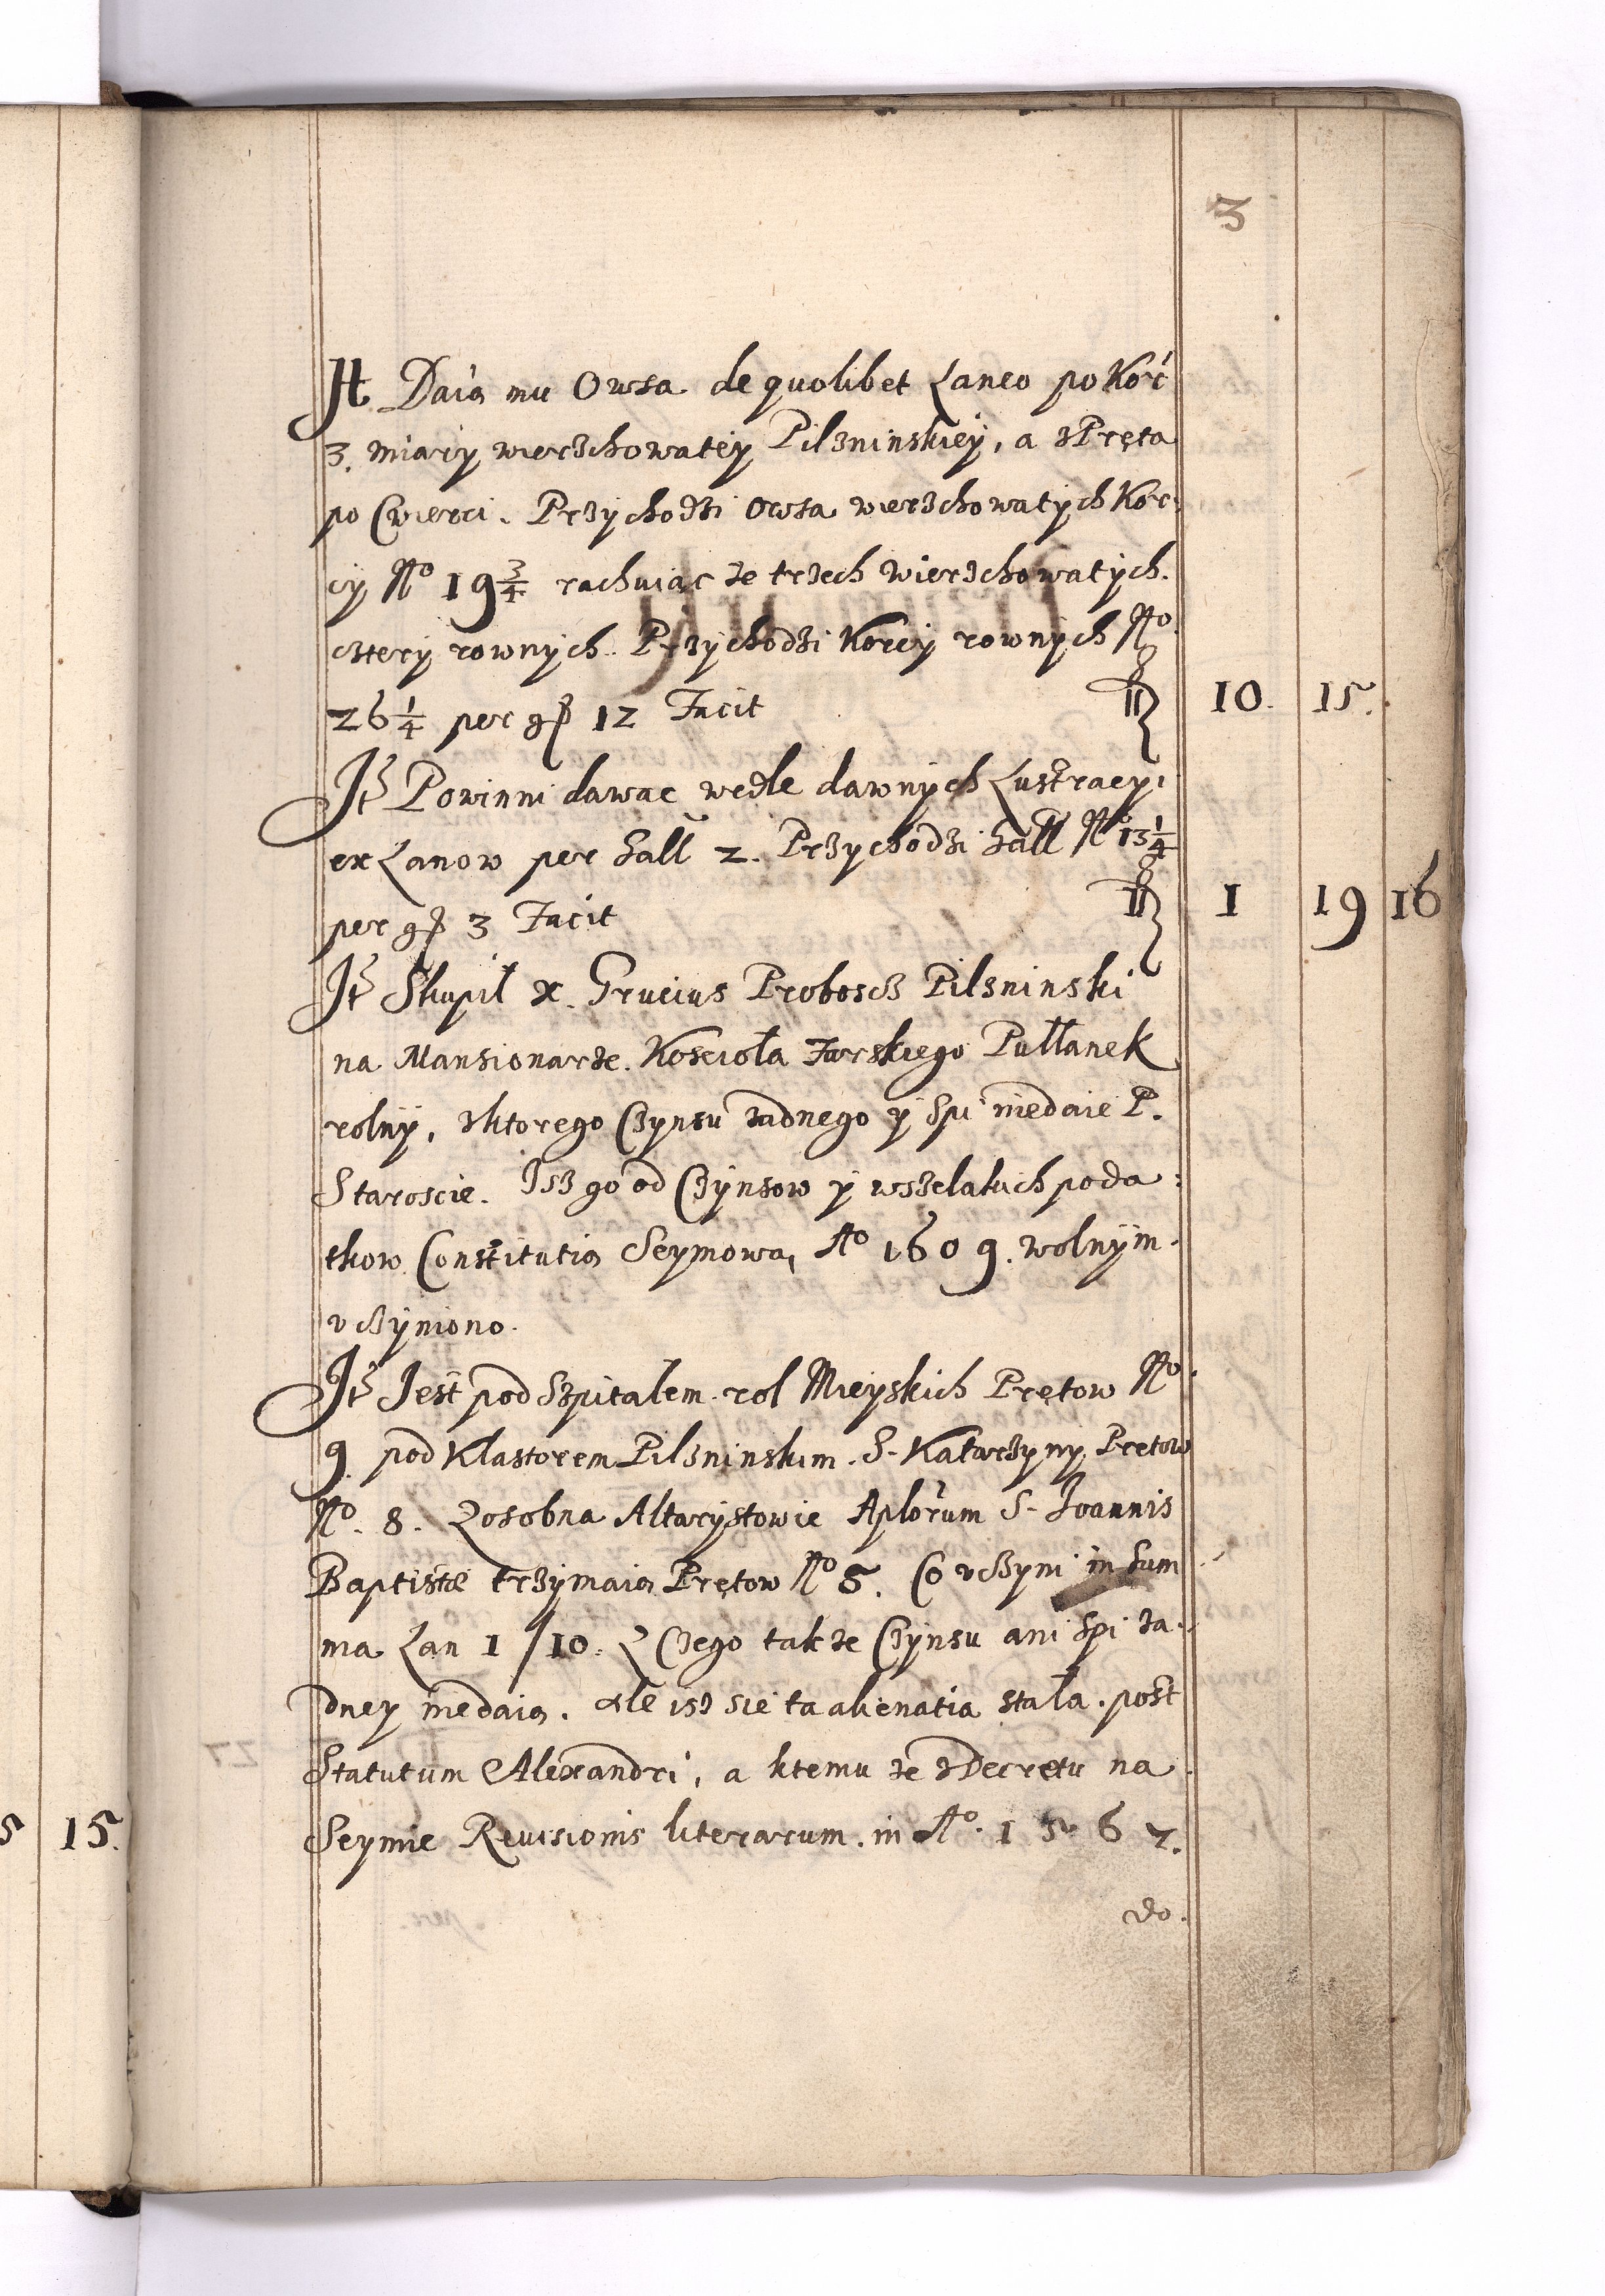 3
It Daią mu Owsa de quolibet Łaneo po Korć
3. miary wierzchowatey Pilznińskiey, a z Pręta
po Cwierci. Przychodzi Owsa wierzchowatych Kor:
cy No 19 3/4 rachuiąc ze trzech wierzchowatych
cztery rownych. Przychodzi Korcy rownych No
26 1/4 per gs 12 Facit 10. 15.
It Powinni dawac wedle dawnych Lustracy,
ex Łanow per Gall 2. Przychodzi Gall No 13 1/4
per gs 3 Facit 1 19 16
It Skupił x. Grucius Proboscz Pilzninski
na Mansionarze Kosciola Farskiego Pułłanek
rolny, z ktorego Czynsu żadnego y Spi niedaie P.
Staroscie. Isz go od Czynsow y wszelakich poda:
tkow Constitutią Seymową Ao 1609. wolnym
uczyniono.
It Jest pod Szpitalem rol Mieyskich Prętow No
9 pod Klastorem Pilzninskim S. Katarzyny Prętow
No. 8. Zosobna Altarystowie Aplorum S. Joannis
Baptistæ trzymaią Prętow No 5. Co uczyni in sum
ma Łan 1/10. Z Czego takze Czynsu ani Spi ża:
dney niedaią. Ale isz sie ta alienatia stała post
Statutum Alexandri, a ktemu że z Decretu na
Seymie Reuisionis literarum in Ao. 1567.
do.
5 15.